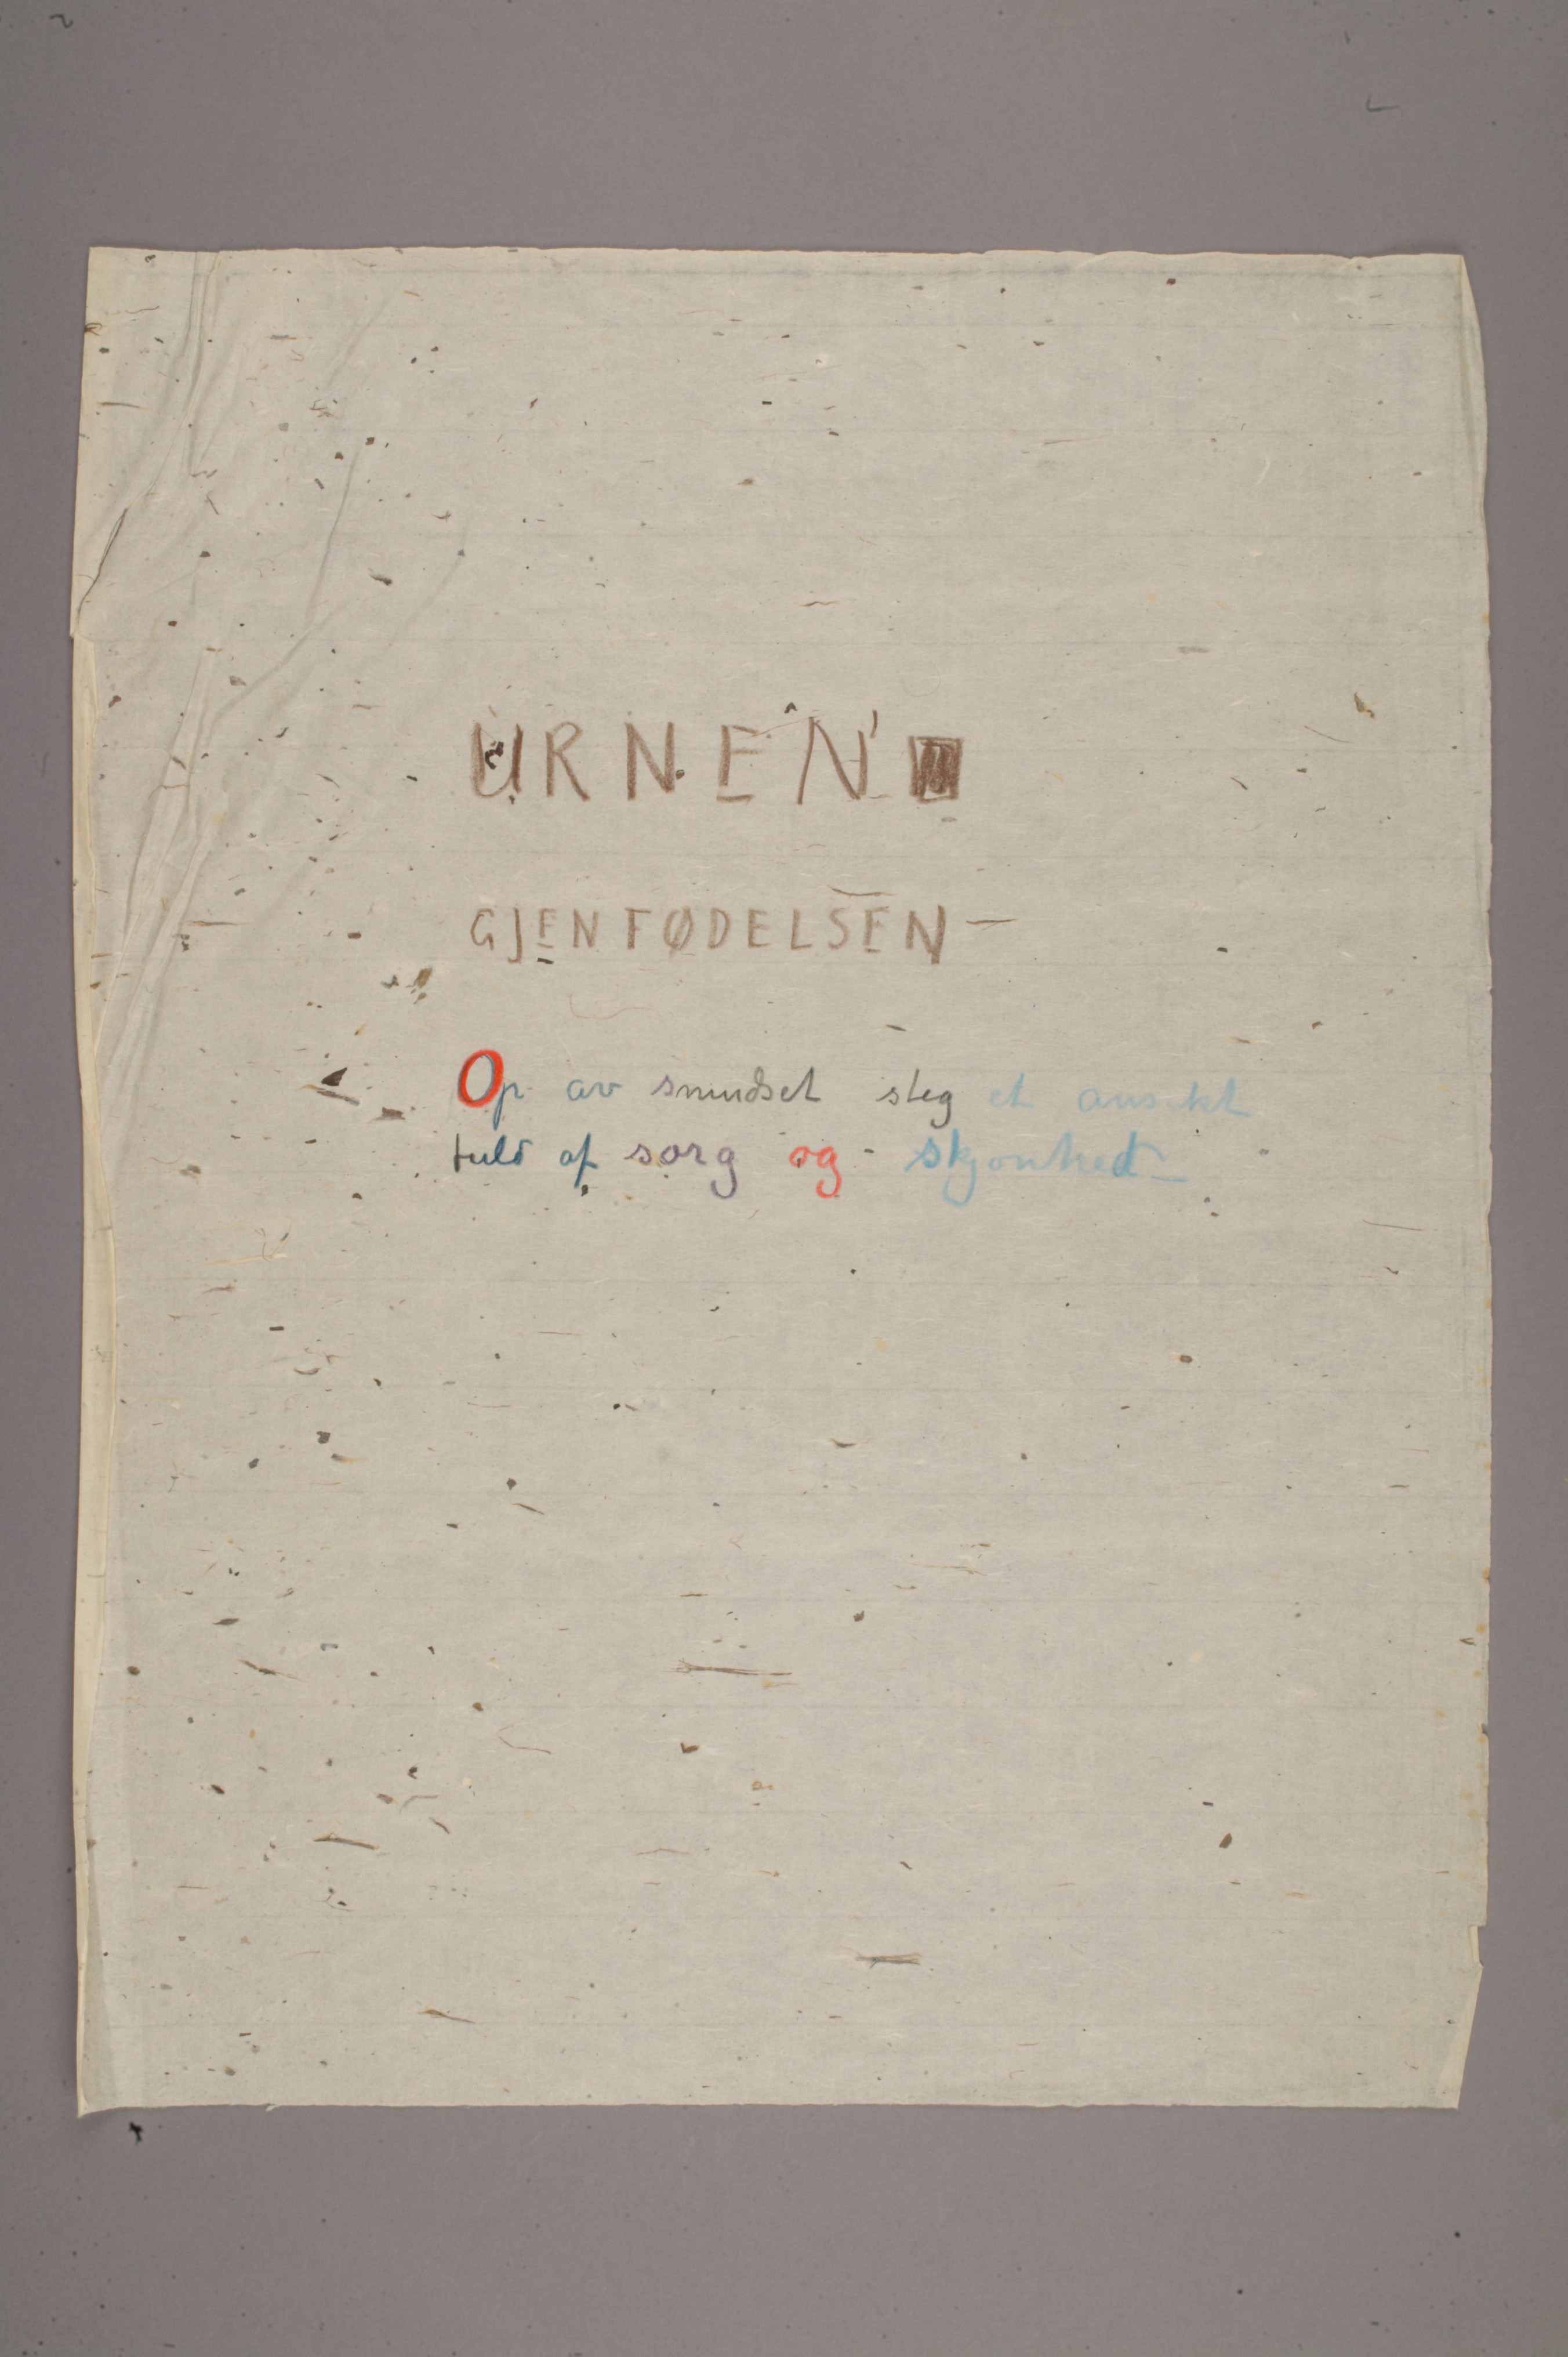 URNEN
GJENFØDELSEN –
Op av smudset steg et ansikt
fuld af sorg og - skjonhed –